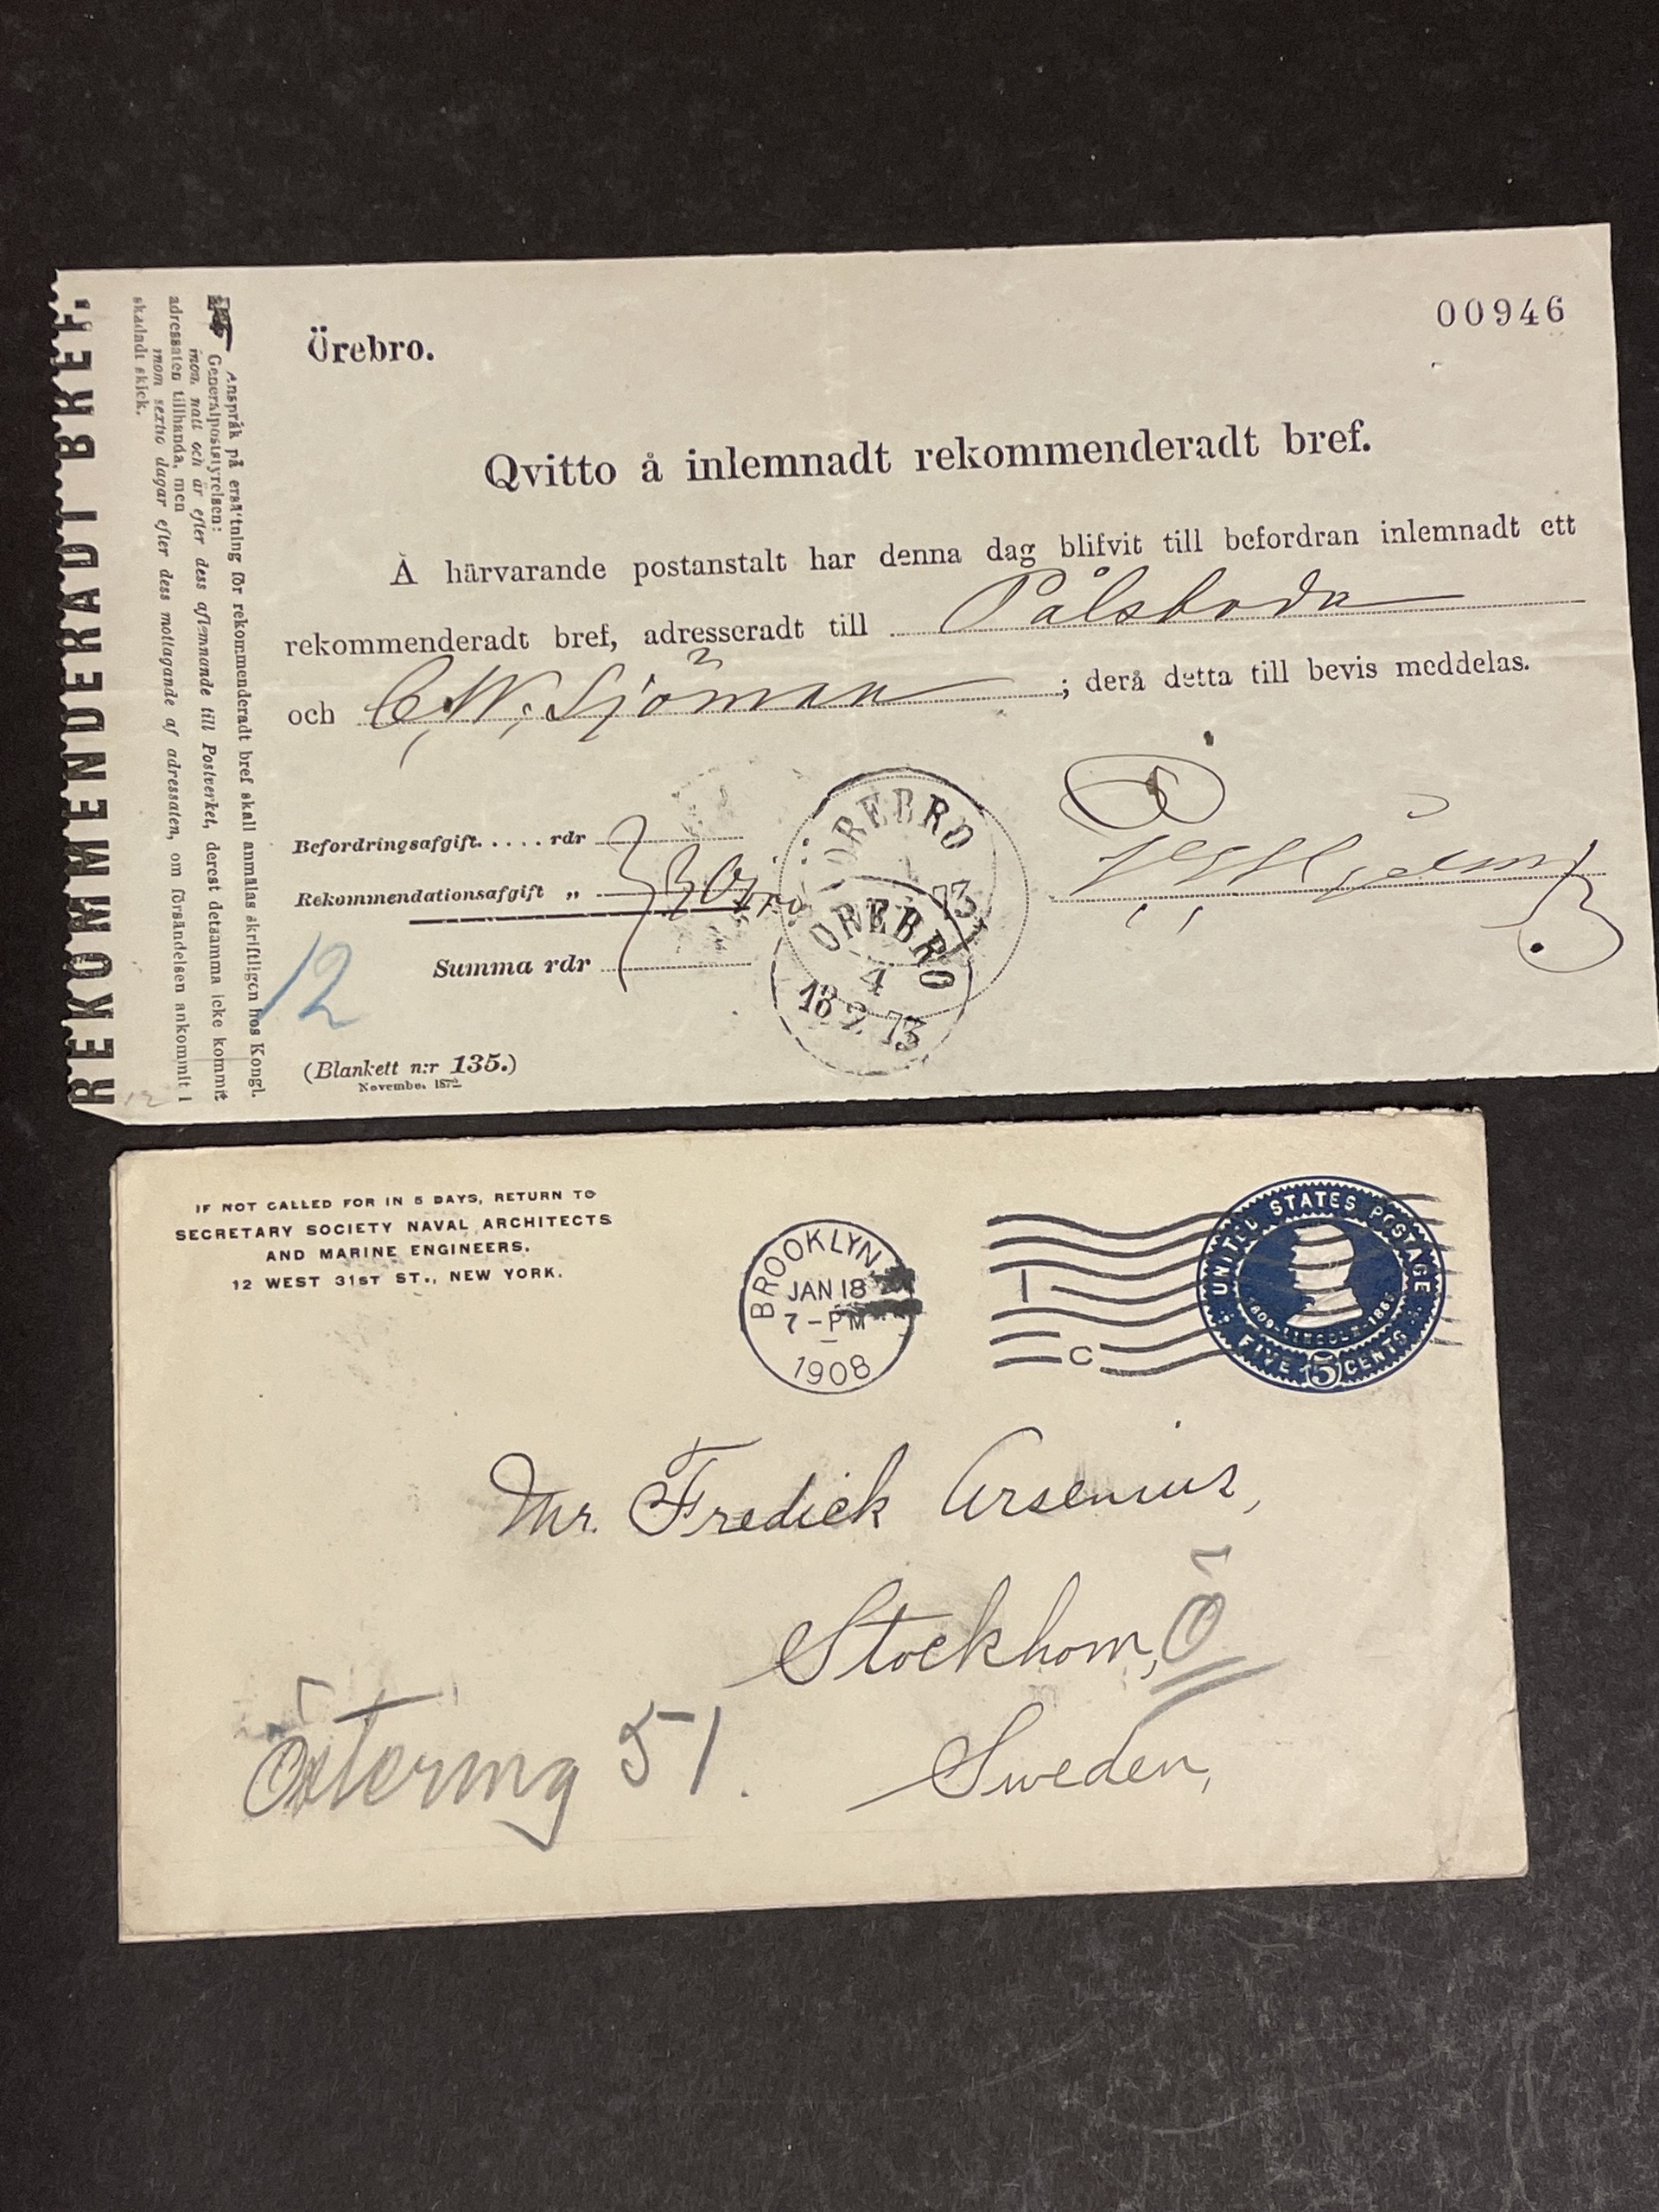 REKOMMENDERADT BREF.
Anspråk på ersättning för rekommenderadt bref skall anmälas skriftligen hos Kongl.
Generalpoststyrelsen:
inom natt och år efter dess aflemnande till Postverket, derest detsamma icke kommit
adressaten tillhanda, men
inom sextio dagar efter dess mottagande af adressaten, om försändelsen ankommit i
skadadt skick.
Örebro.
00946
Qvitto å inlemnadt rekommenderadt bref.
Å härvarande postanstalt har denna dag blifvit till befordran inlemnadt ett
rekommenderadt bref, adresseradt till Pålsboda
och C. W. Sjöman ; derå detta till bevis meddelas.
Befordringsafgift. .... rdr
Rekommendationsafgift „
Summa rdr
12
ÖREBRO
73
ÖREBRO
4
1873
(Blankett n:r 135.)
November 1872
12
IF NOT CALLED FOR IN 5 DAYS, RETURN TO
SECRETARY SOCIETY NAVAL ARCHITECTS
AND MARINE ENGINEERS.
12 WEST 31ST ST., NEW YORK.
BROOKLYN
JAN 18
7-PM
1908
1
C
UNITED STATES POSTAGE
1809-LINCOLN-1865
FIVE 5 CENTS
Mr. Fredick Arsenius,
Stockhom, Ö
Östermg 51.
Sweden,